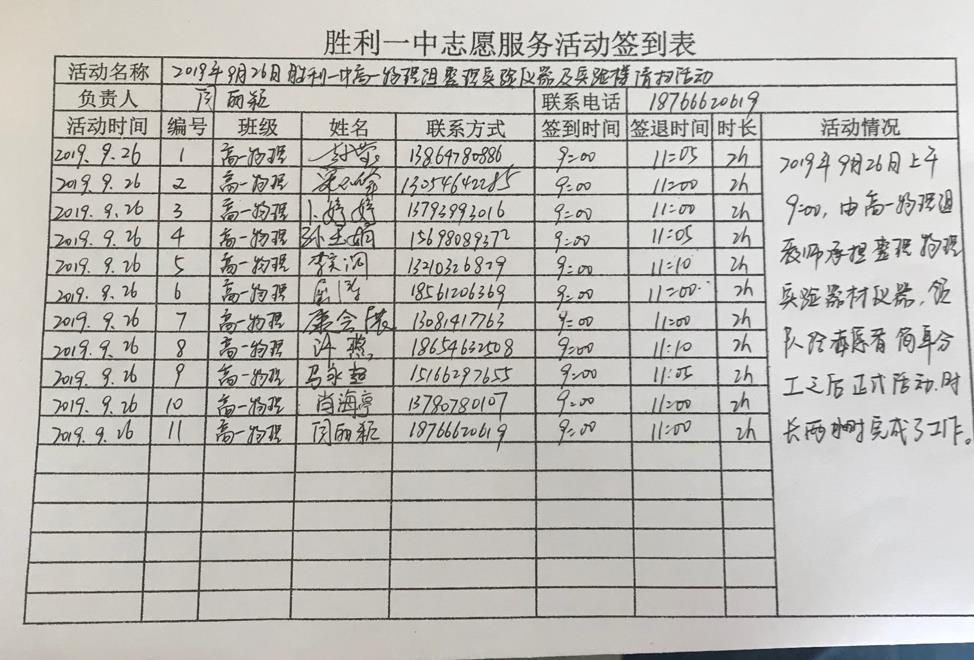 胜利一中志愿服务活动签到表
活动名称 2019年9月26日胜利一中高一物理组整理实验仪器及实验楼清扫活动
负责人 闫丽颖 联系电话 18766620619
活动时间 编号 班级 姓名 联系方式 签到时间 签退时间 时长 活动情况
2019.9.26 1 高一物理 13864780886 9:00 11:05 2h
2019.9.26 2 高一物理 13054642285 9:00 11:00 2h
2019.9.26 3 高一物理 卜婷婷 13793993016 9:00 11:00 2h
2019.9.26 4 高一物理 孙玉娟 15698089372 9:00 11:05 2h
2019.9.26 5 高一物理 李文润 13210326829 9:00 11:10 2h
2019.9.26 6 高一物理 18561206369 9:00 11:00 2h
2019.9.26 7 高一物理 13081417763 9:00 11:00 2h
2019.9.26 8 高一物理 许燕 18654632508 9:00 11:10 2h
2019.9.26 9 高一物理 马永超 15166297655 9:00 11:05 2h
2019.9.26 10 高一物理 肖海亭 13780780107 9:00 11:00 2h
2019.9.26 11 高一物理 闫丽颖 18766620619 9:00 11:00 2h
2019年9月26日上午
9:00,由高一物理组
教师承担整理物理
实验器材仪器,领
队给志愿者简单分
工之后正式活动.时
长两小时完成了工作。